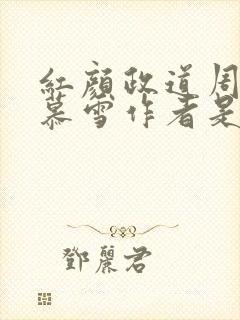 紅顏政道周
慕雪作者是
鄧麗君